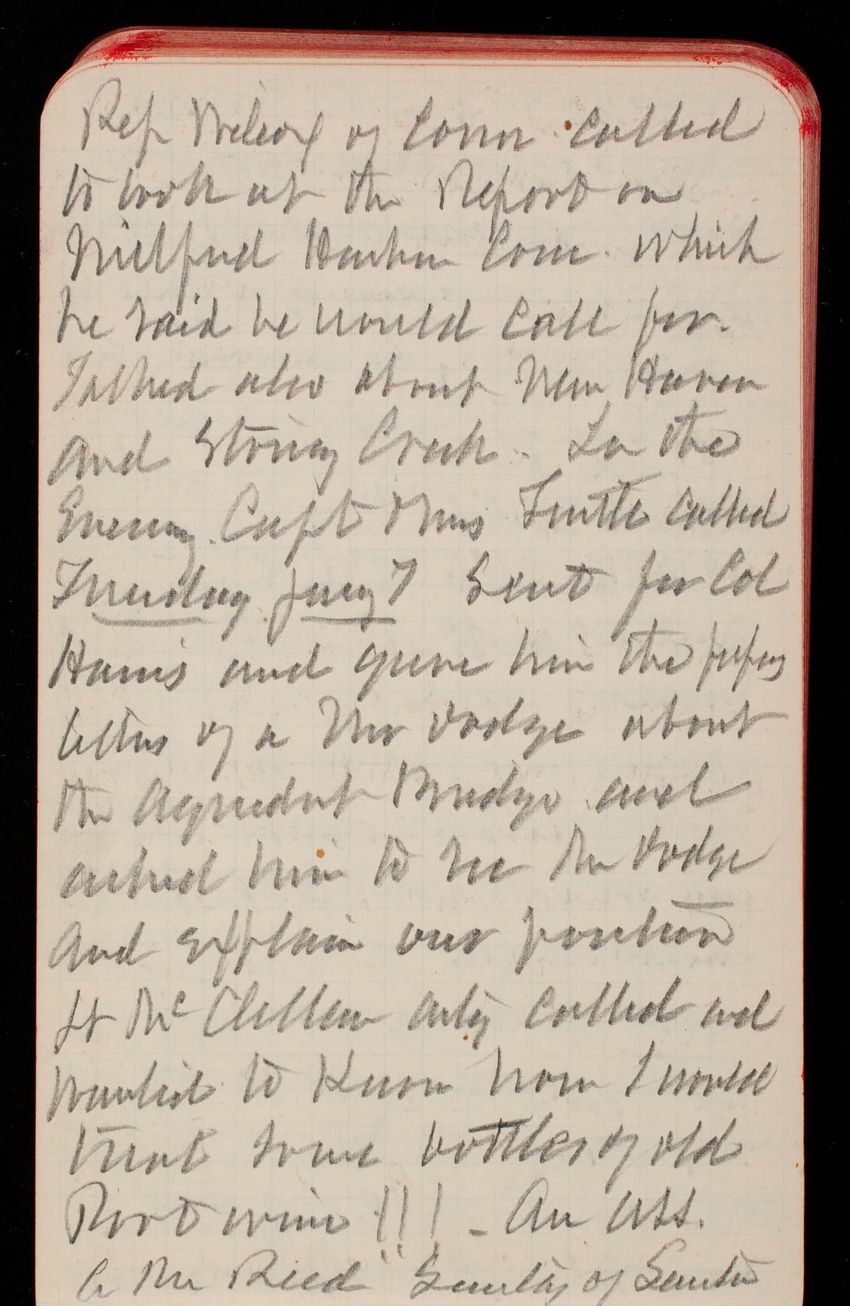 Rep Wilcox of Conn. called
to look at the Report on
Milford Harbor Conn. which
he said he would call for.
Talked also about New Haven
and Stony Creek. In the
Evening Capt Thos Turtle called
Tuesday Jany 7 Sent for Col
Hains and gave him the papers
letters of a Mr Dodge about
the Aqueduct Bridge and
asked him to see Mr Dodge
and explain our position
Lt McClellan arty called and
wanted to know how I would
treat some bottles of old
Port wine !!! - An ass.
A Mr Reed Secretary of Senator